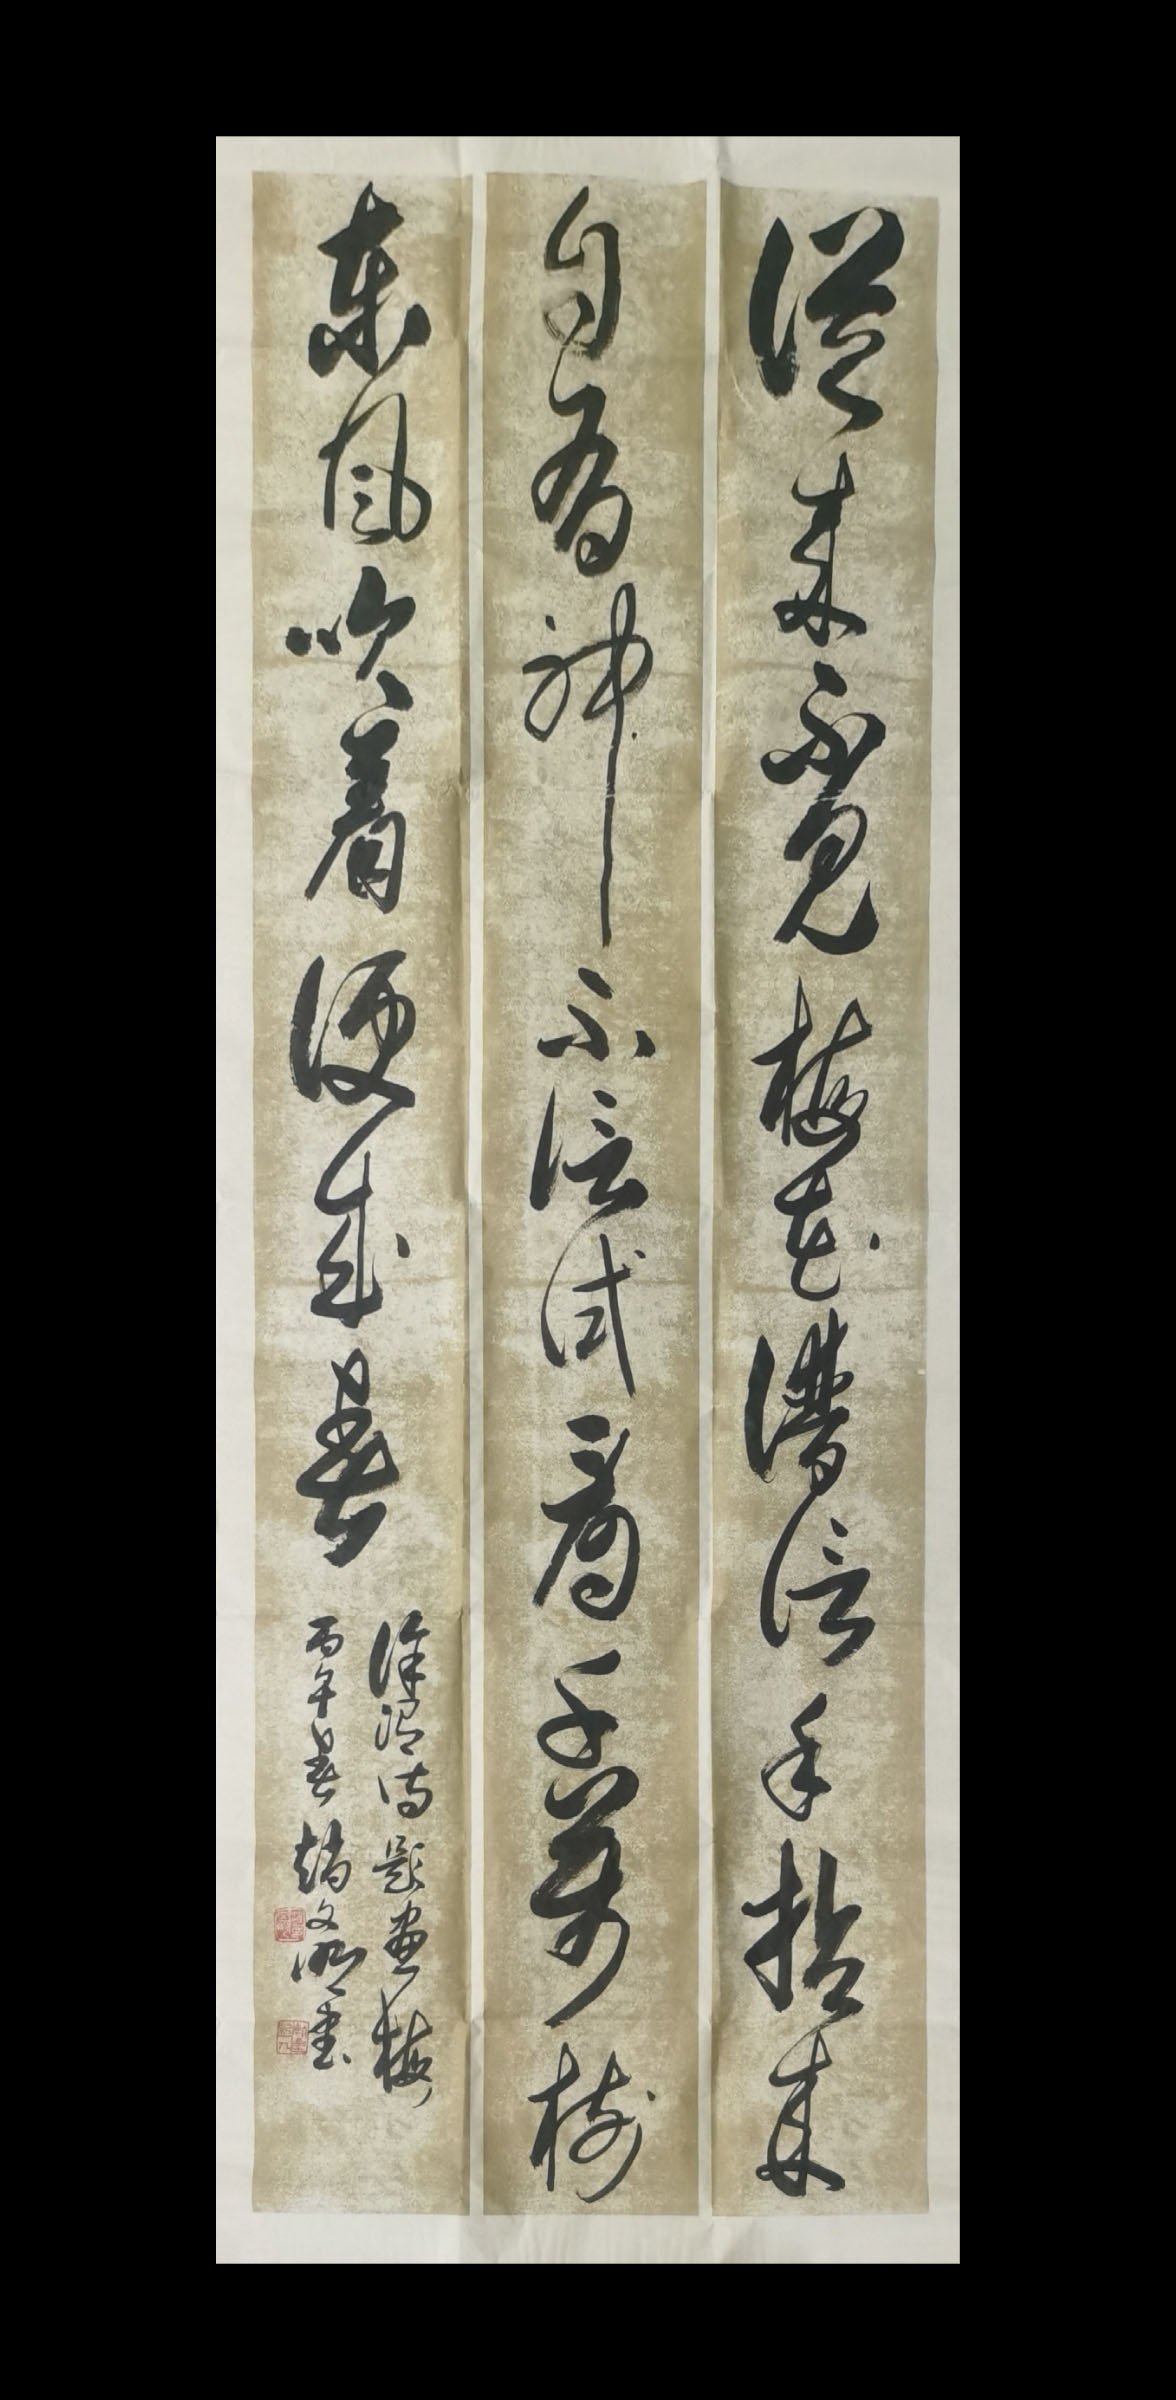 從来不見梅花譜信手拈来
自有神不信試看千萬樹
東風吹着便成春
徐渭詩題畫梅
丙午春趙文明書